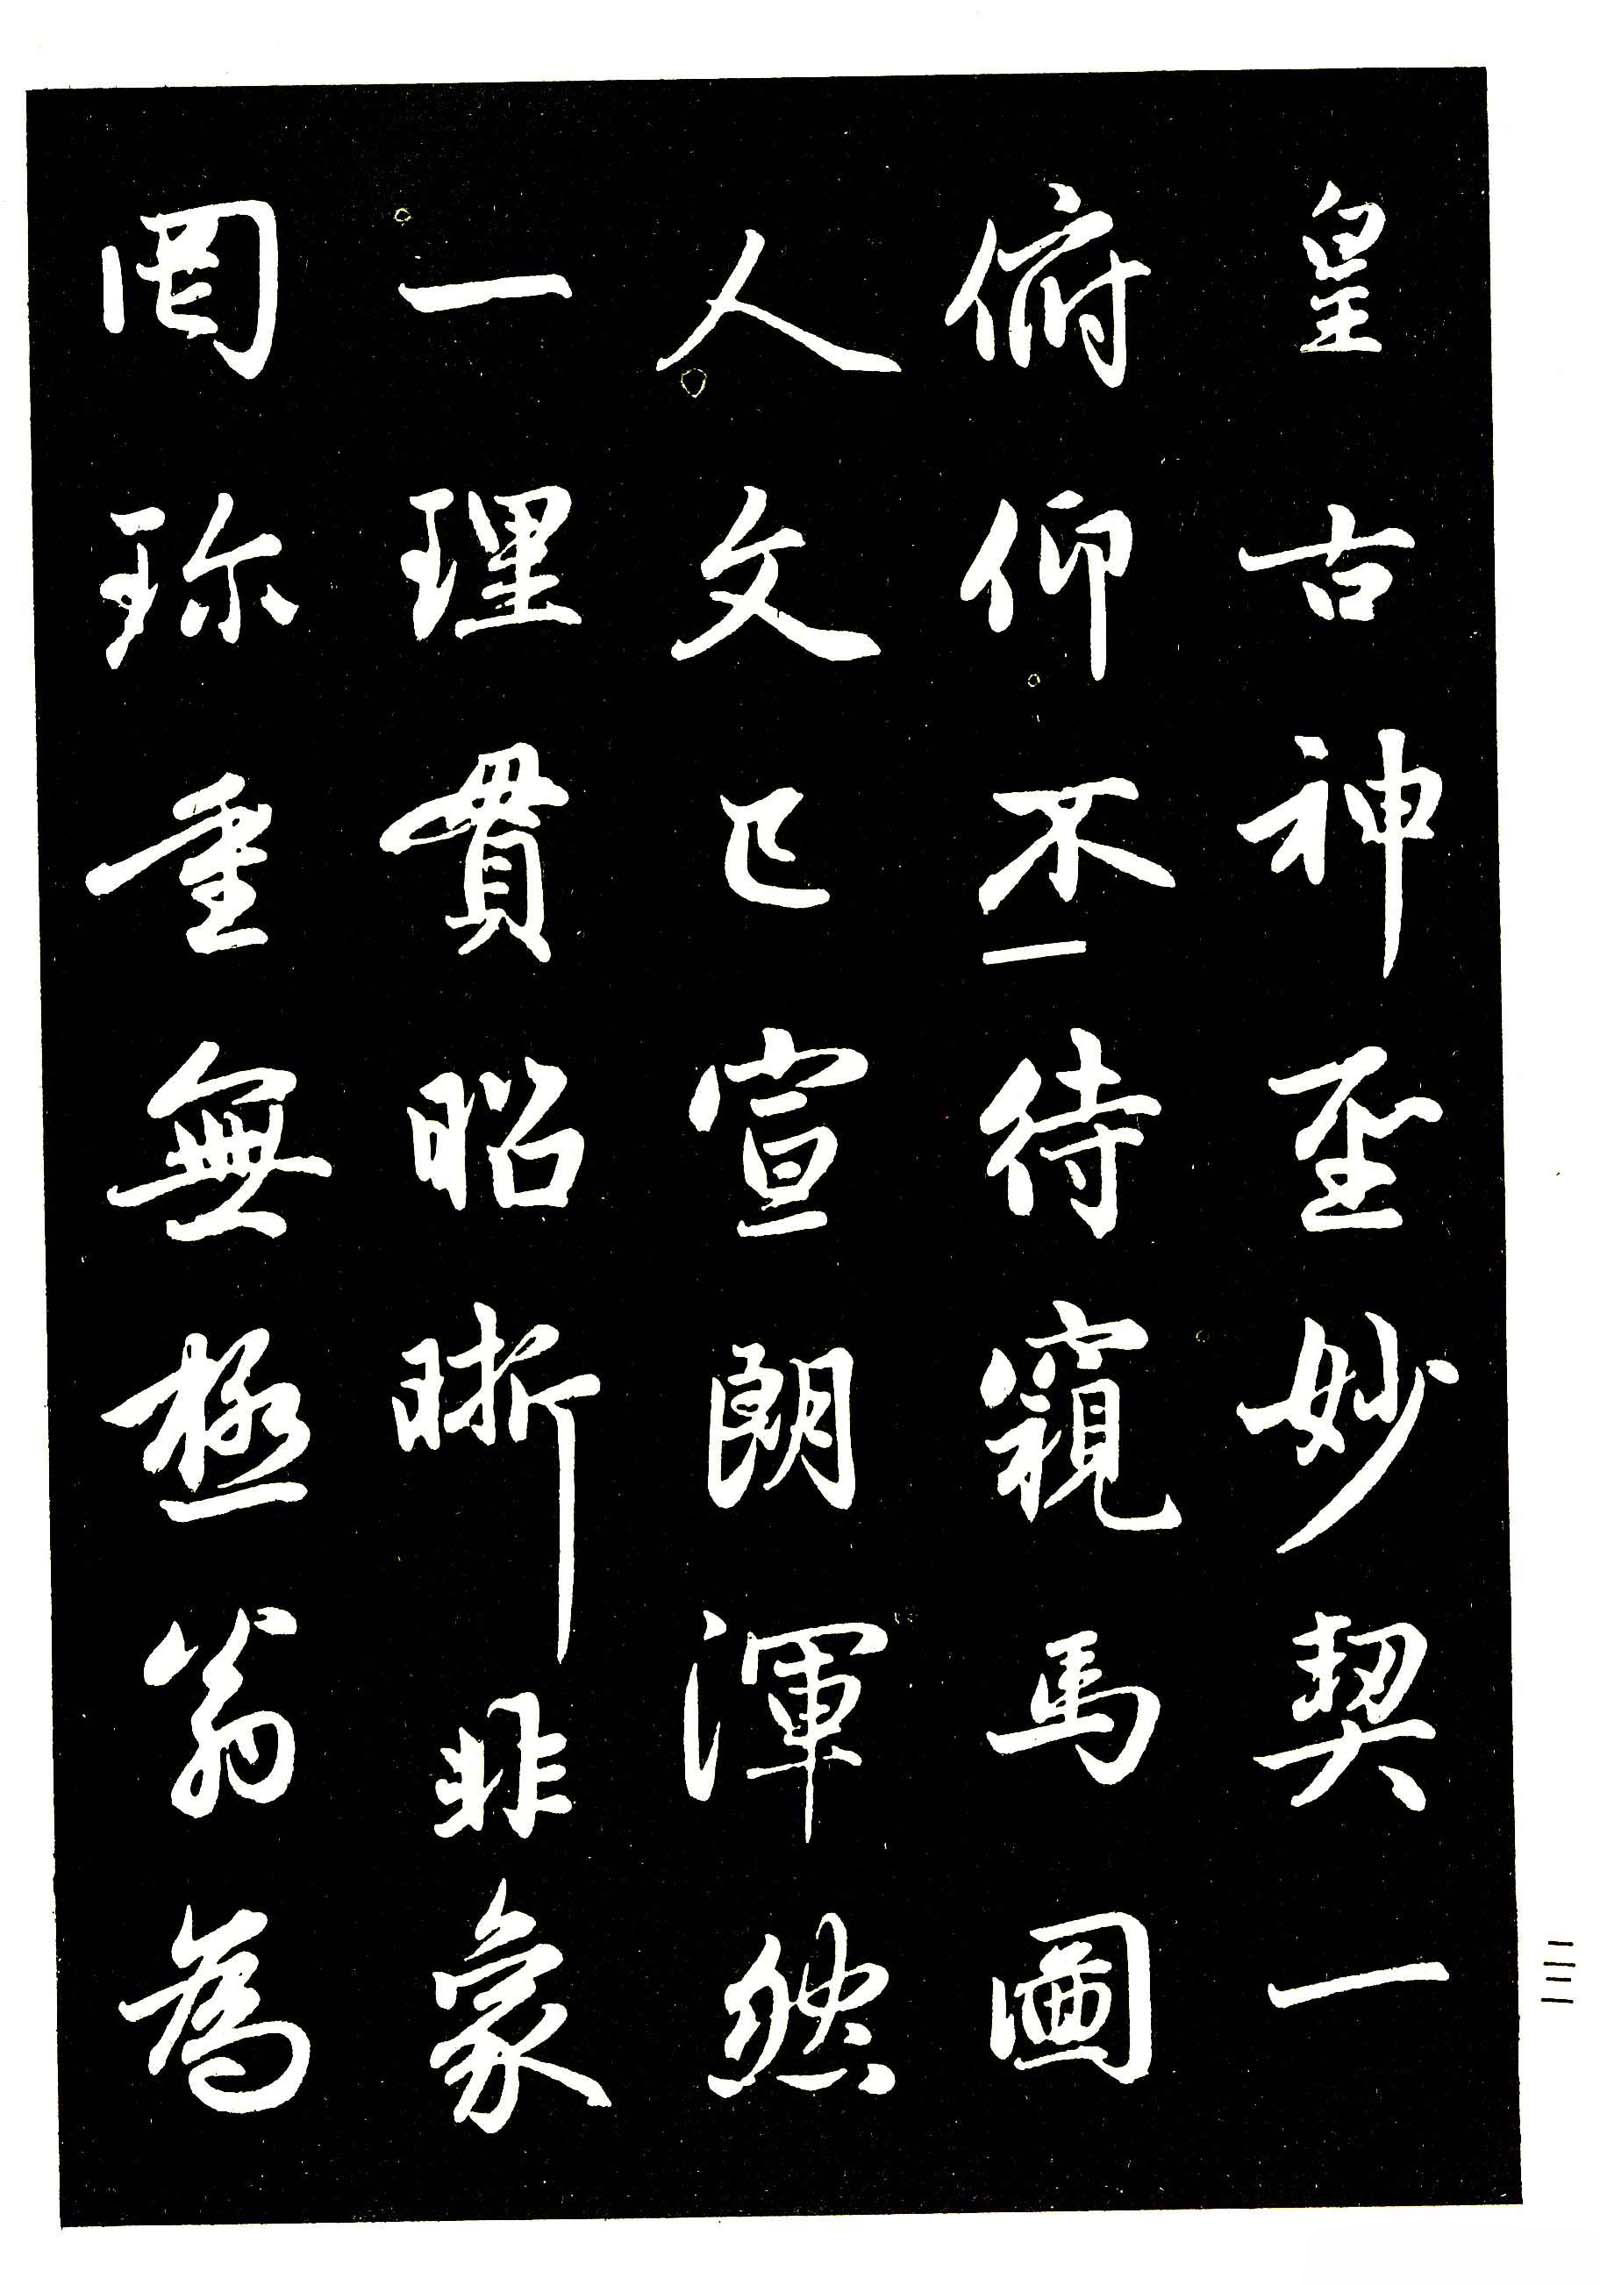 皇古神圣妙契一
俯仰丕待窺馬圖
人文已宣朗渾然
一理貫昭晰非象
罔珎重無極翁為